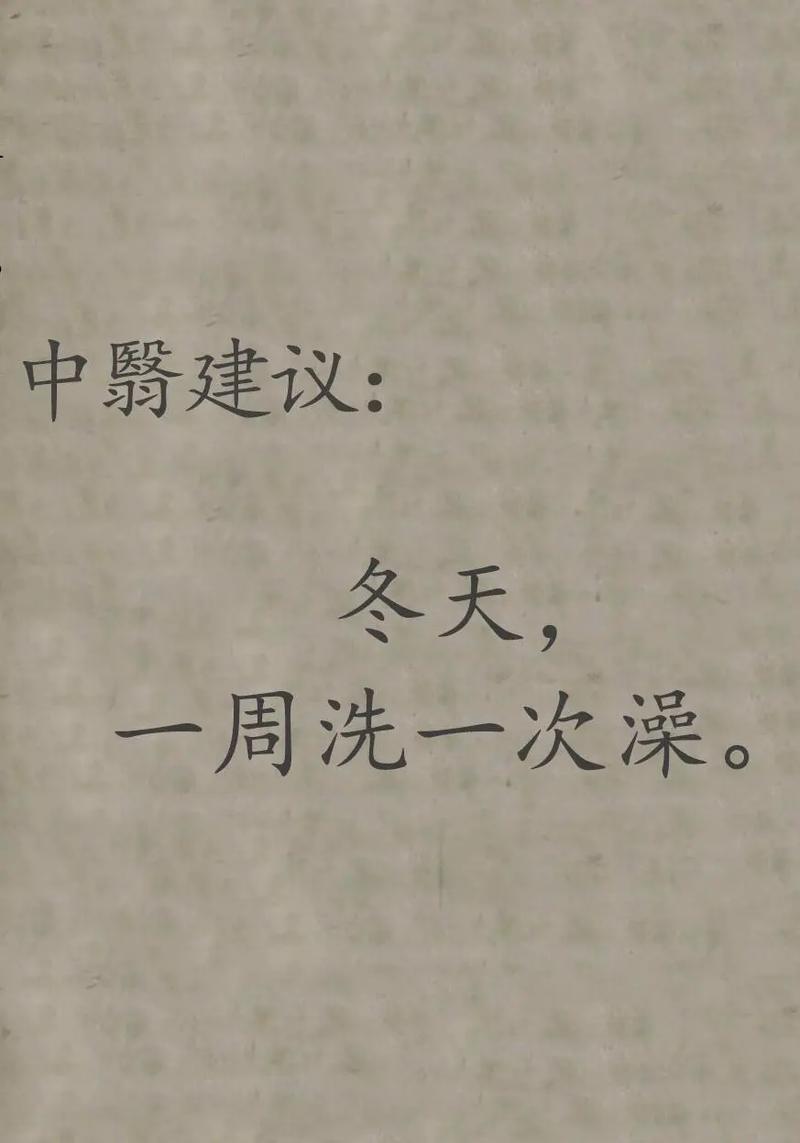 中翳建议：
冬天，
一周洗一次澡。